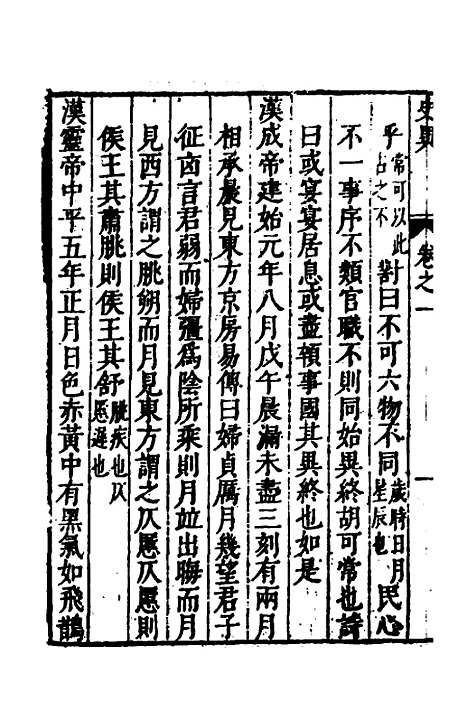 史異 卷之一 一
乎常可以此占之不對曰不可六物不同歲時日月星辰也民心
不一事序不類官職不則同始異終胡可常也詩
曰或宴宴居息或盡顇事國其異終也如是
漢成帝建始元年八月戊午晨漏未盡三刻有兩月
相承晨見東方京房易傳曰婦貞厲月幾望君子
征凶言君弱而婦彊爲陰所乘則月並出晦而月
見西方謂之朓朔而月見東方謂之仄慝仄慝則
侯王其肅朓則侯王其舒朓疾也仄慝遲也
漢靈帝中平五年正月日色赤黃中有黑氣如飛鵲